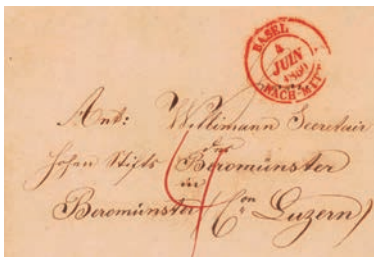 BASEL
4
JUIN
1860
NACH-MIT
Ant: Willimann Secretair
des
hohen Stifts Beromünster
in
Beromünster (Con Luzern)